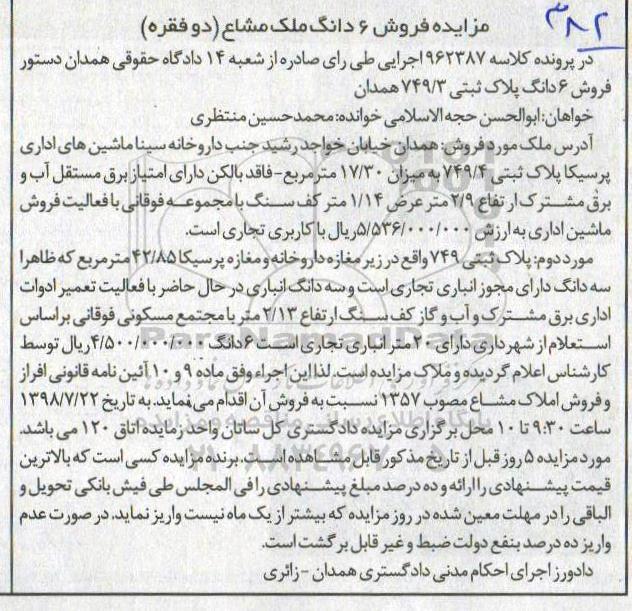 ۳۸۲
مزایده فروش ۶ دانگ ملک مشاع (دو فقره)
در پرونده کلاسه ۹۶۲۳۸۷ اجرایی طی رای صادره از شعبه ۱۴ دادگاه حقوقی همدان دستور
فروش ۶ دانگ پلاک ثبتی ۷۴۹/۳ همدان
خواهان: ابوالحسن حجه الاسلامی خوانده: محمدحسین منتظری
آدرس ملک مورد فروش: همدان خیابان خواجه رشید جنب داروخانه سینا ماشین های اداری
پرسیکا پلاک ثبتی ۷۴۹/۴ به میزان ۱۷/۳۰ متر مربع-فاقد بالکن دارای امتیاز برق مستقل آب و
برق مشترک ارتفاع ۲/۹ متر عرض ۱/۱۴ متر کف سنگ با مجموعه فوقانی با فعالیت فروش
ماشین اداری به ارزش ۵/۵۳۶/۰۰۰/۰۰۰ ریال با کاربری تجاری است.
مورد دوم: پلاک ثبتی ۷۴۹ واقع در زیر مغازه داروخانه و مغازه پرسیکا ۴۲/۸۵ متر مربع که ظاهرا
سه دانگ دارای مجوز انباری تجاری است و سه دانگ انباری در حال حاضر با فعالیت تعمیر ادوات
اداری برق مشترک و آب و گاز کف سنگ ارتفاع ۲/۱۳ متر با مجتمع مسکونی فوقانی بر اساس
استعلام از شهرداری دارای ۲۰ متر انباری تجاری است ۶ دانگ ۴/۵۰۰/۰۰۰/۰۰۰ ریال توسط
کارشناس اعلام گردیده و ملاک مزایده است. لذا این اجراء وفق ماده ۹ و ۱۰ آئین نامه قانونی افراز
و فروش املاک مشاع مصوب ۱۳۵۷ نسبت به فروش آن اقدام می نماید. به تاریخ ۱۳۹۸/۷/۲۲
ساعت ۹:۳۰ تا ۱۰ محل برگزاری مزایده دادگستری کل سالن واحد زمایده اتاق ۱۲۰ می باشد.
مورد مزایده ۵ روز قبل از تاریخ مذکور قابل مشاهده است. برنده مزایده کسی است که بالاترین
قیمت پیشنهادی را ارائه و ده درصد مبلغ پیشنهادی را فی المجلس طی فیش بانکی تحویل و
الباقی را در مهلت معین شده در روز مزایده که بیشتر از یک ماه نیست واریز نماید. در صورت عدم
واریز ده درصد بنفع دولت ضبط و غیر قابل برگشت است.
دادورز اجرای احکام مدنی دادگستری همدان - زائری
ParsNamadData
۰۲۱-۸۸۳۴۹۶۷۰-۵